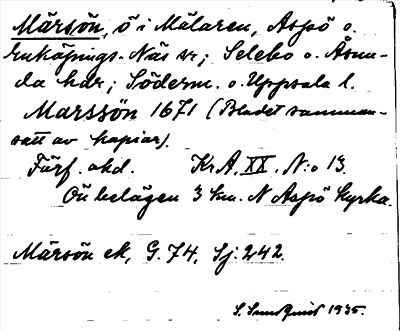 Märsön, ö i Mälaren, Aspö o.
Enköpings-Näs sr; Selebo o. Åsun-
da hdr; Söderm. o. Uppsala l.
Marssön 1671 (Bladet samman-
satt av kopior).
Förf. okd. KrA. XX. N:o 13.
Ön belägen 3 km. N Aspö kyrka.
Märsön ek, G. 74, Sj: 242.
S. Sundquist 1935.